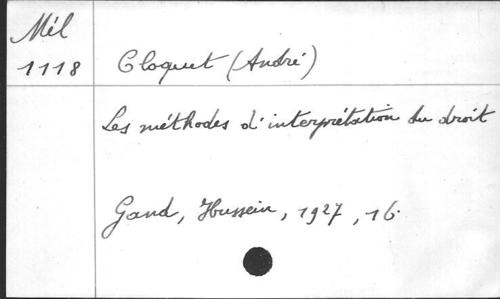 Mél
1118
Cloquet (André)
Les méthodes d'interprétation du droit
Gand, Hussein, 1927, 16.